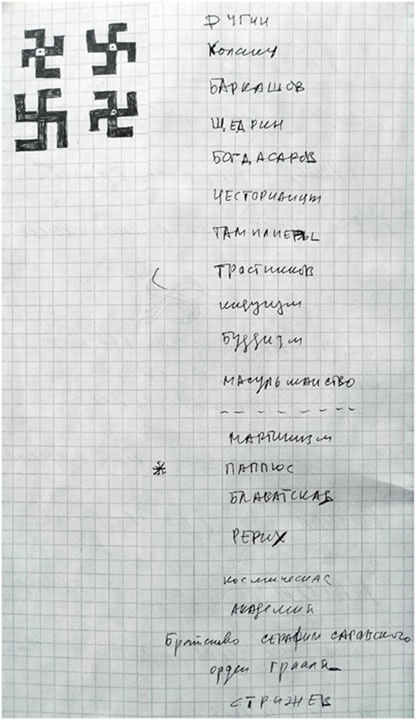 ДУГИН
БАРКАШОВ
ЩЕДРИН
БОГДАСАРОВ
НЕСТОРИАНЦЫ
ТАМПЛИЕРЫ
Тростников
индуизм
БУДДИЗМ
МАСУЛЬМАНСТВО
МАРТИНИЗМ
* ПАППЮС
БЛАВАТСКАЯ
РЕРИХ
космическая
АКАДЕМИЯ
Братство СЕРАФИМ САРОВСКОГО
орден ГРААЛЯ
СТРИЖЕВ